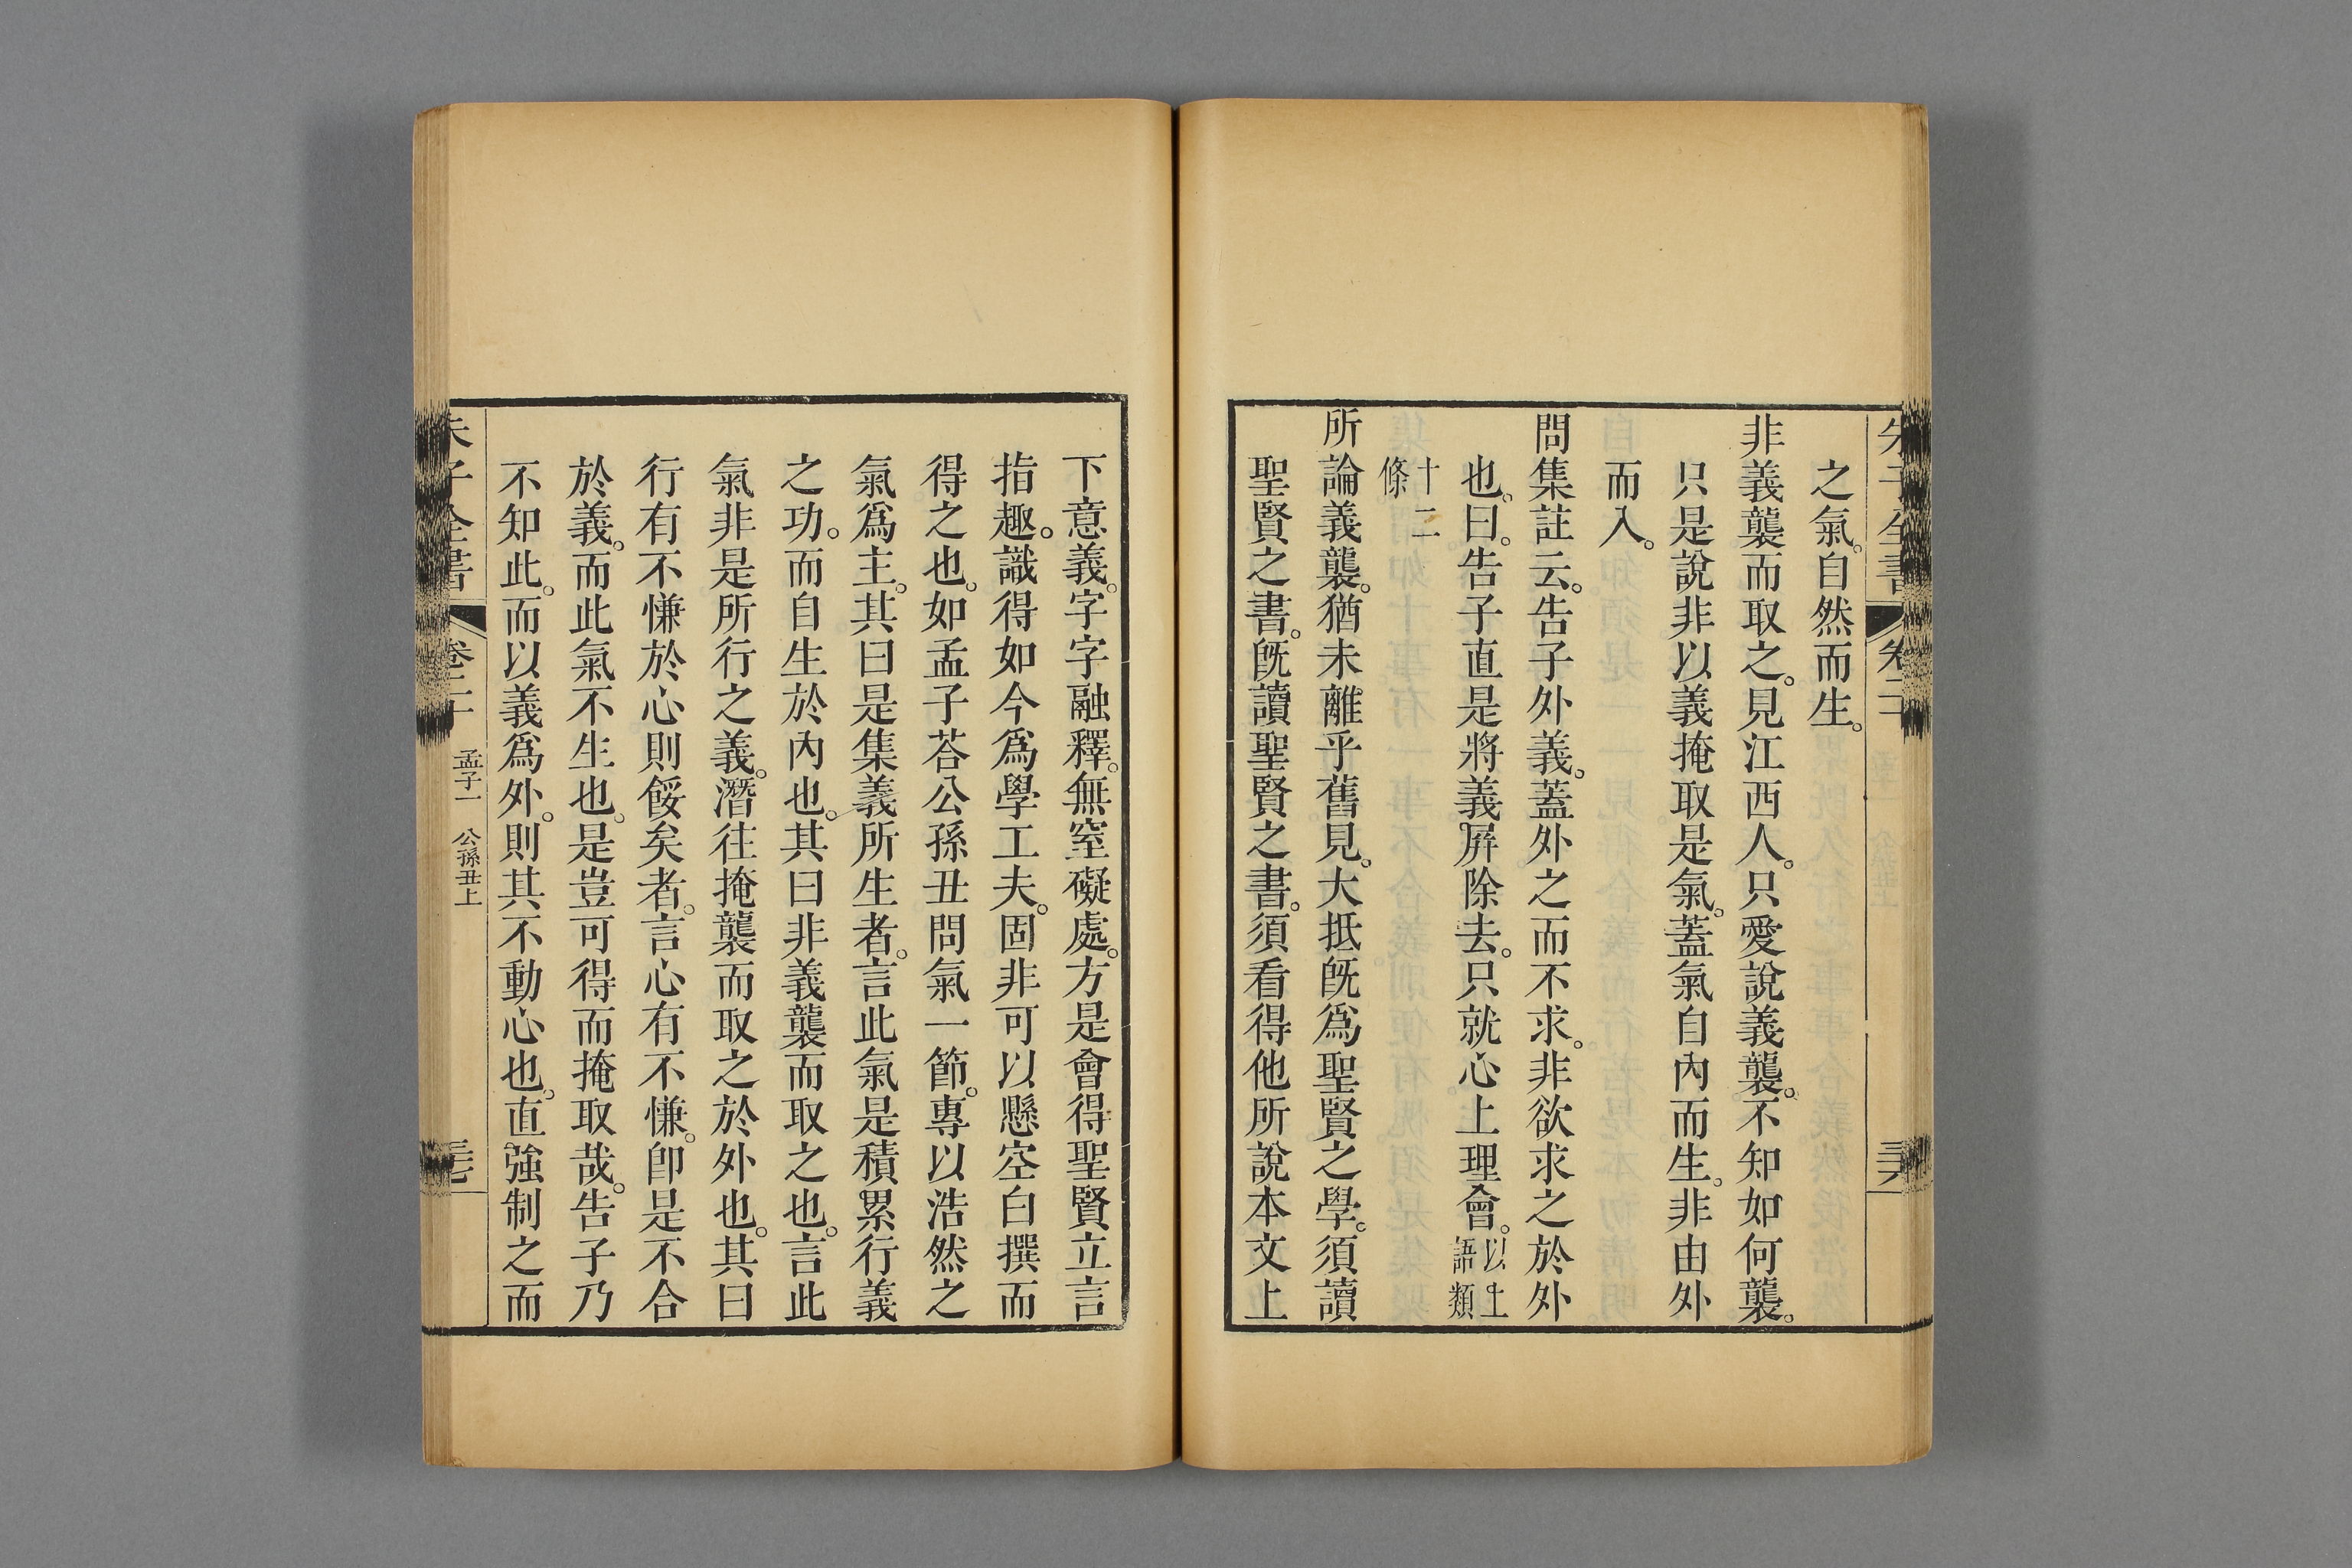 之氣。自然而生。
非義襲而取之。見江西人。只愛說義襲。不知如何襲。
只是說非以義掩取是氣。蓋氣自內而生。非由外
而入。
問集註云。告子外義。蓋外之而不求。非欲求之於外
也。曰。告子直是將義屏除去。只就心上理會。以上語類
十二條
所論義襲。猶未離乎舊見。大抵旣爲聖賢之學。須讀
聖賢之書。旣讀聖賢之書。須看得他所說本文上
下意義。字字融釋。無窒礙處。方是會得聖賢立言
指趣。識得如今爲學工夫。固非可以懸空白撰而
得之也。如孟子荅公孫丑問氣一節。專以浩然之
氣爲主。其曰是集義所生者。言此氣是積累行義
之功。而自生於內也。其曰非義襲而取之也。言此
氣非是所行之義。潛往掩襲而取之於外也。其曰
行有不慊於心則餒矣者。言心有不慊。卽是不合
於義。而此氣不生也。是豈可得而掩取哉。告子乃
不知此。而以義爲外。則其不動心也。直強制之而
朱子全書 卷二十 孟子一 公孫丑上